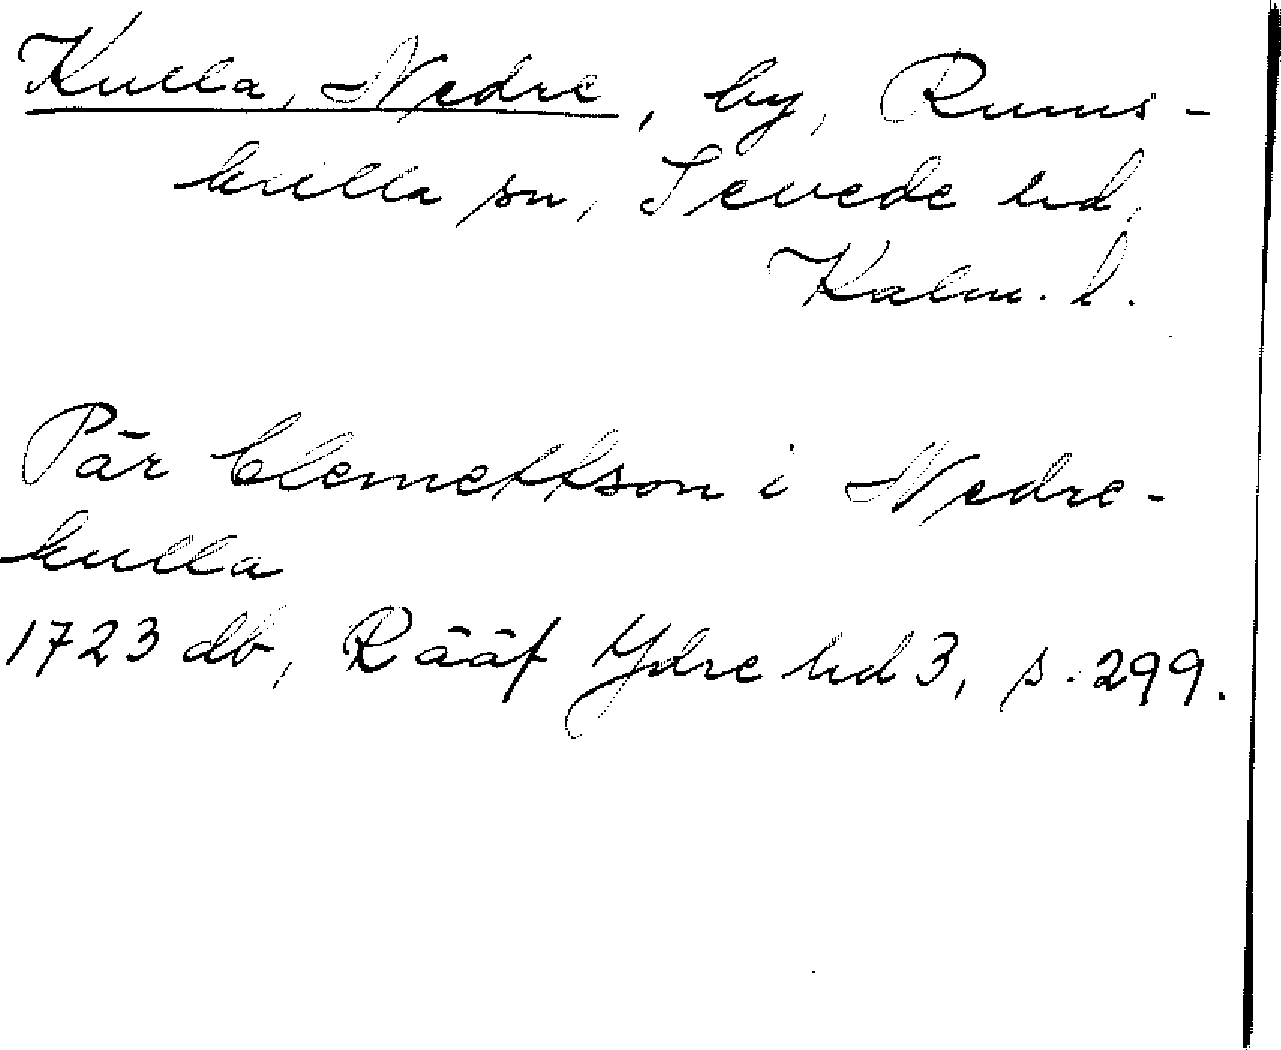 Kulla, Nedre, by, Rums-
kulla sn, Sevede hd,
Kalm. l.
Pär Clemettson i Nedre-
kulla
1723 db, Rääf Ydre hd 3, s. 299.